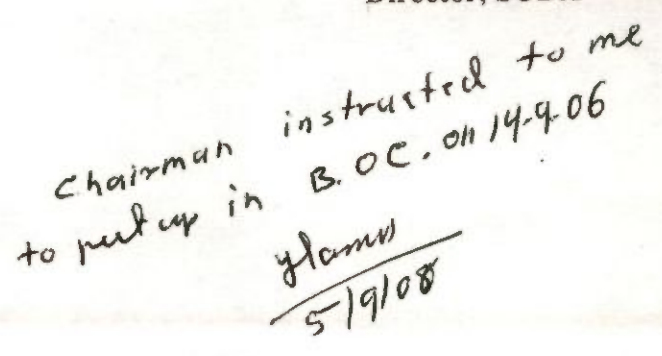 Director,
Chairman instructed to me
to put up in B.OC. on 14-9-06
5/9/08